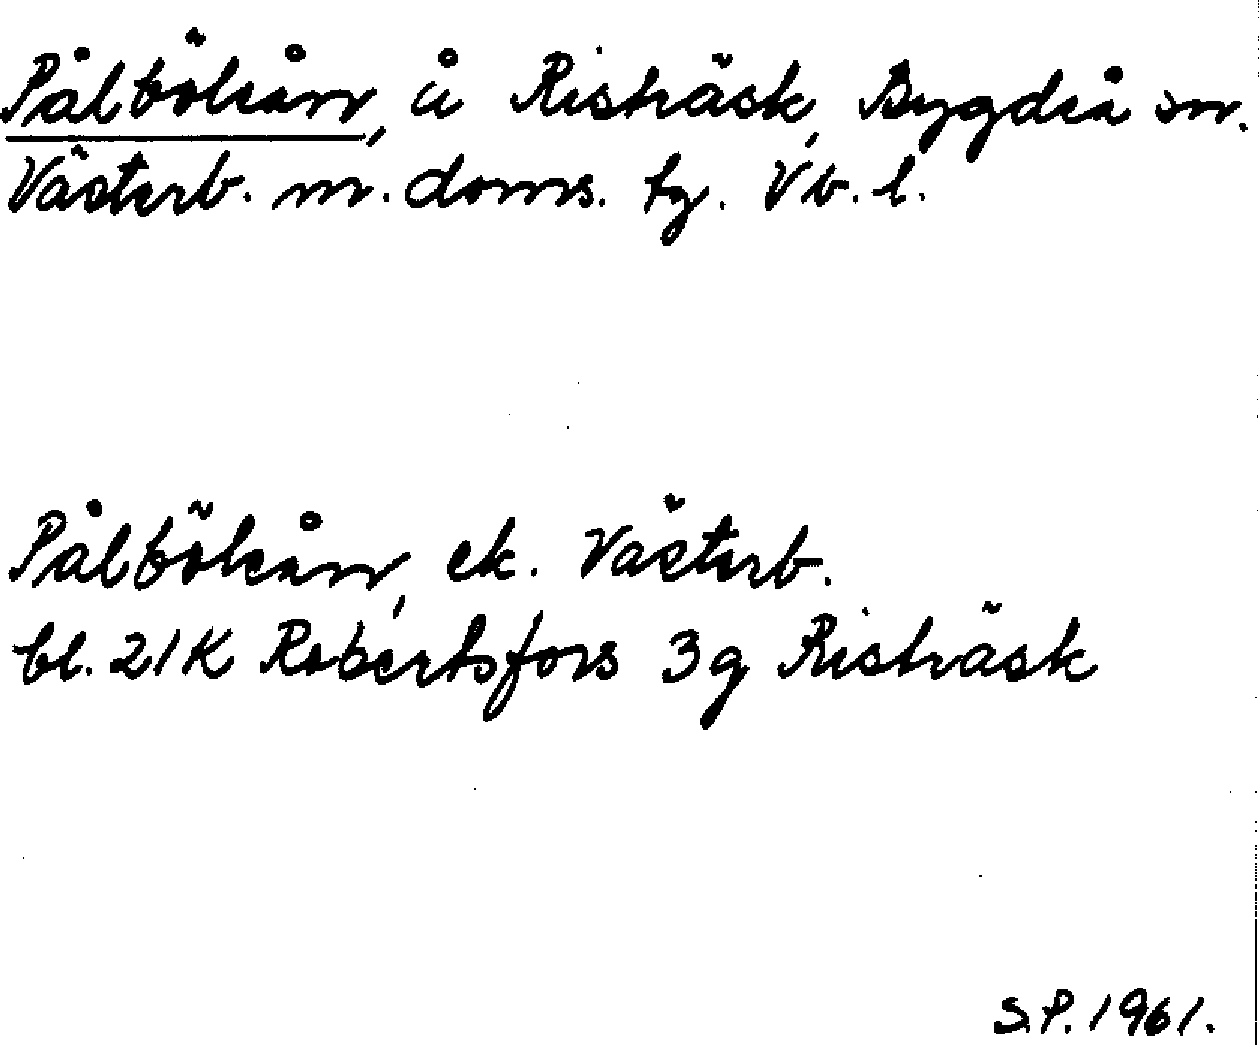 Pålböleån, å Risträsk, Bygdeå sn.
Västerb. m. doms. tg. Vb. l.
Pålböleån, ek. Västerb.
bl. 21K Robertsfors 3g Risträsk
S.P. 1961.